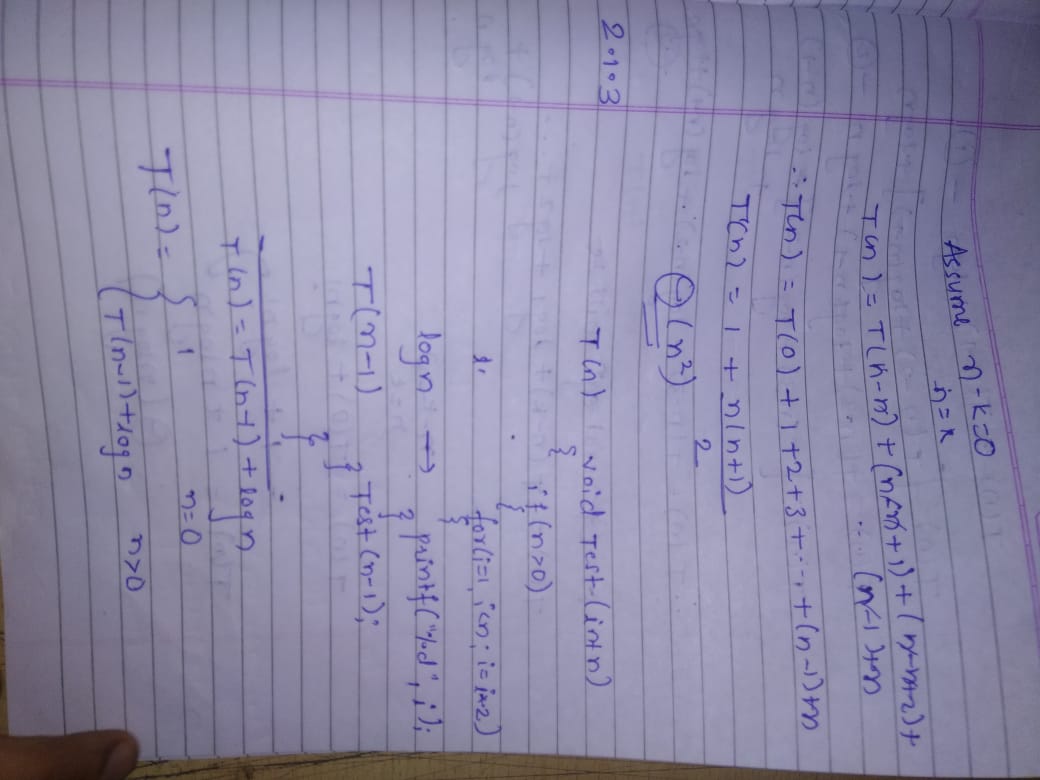 Assume n-k=0
n=k
T(n) = T(n-n) + (n-n+1) + (n-n+2) +
... (n-1)+n
∴ T(n) = T(0) + 1+2+3+...+(n-1)+n
T(n) = 1 + n(n+1)
2
Θ(n²)
2.1.3
T(n) void Test(int n)
{
if(n>0)
{
for(i=1, i<n; i=i*2)
{
logn → printf("%d", i);
}
T(n-1) Test(n-1);
}
}
T(n) = T(n-1) + logn
T(n) = { 1 n=0
T(n-1)+logn n>0